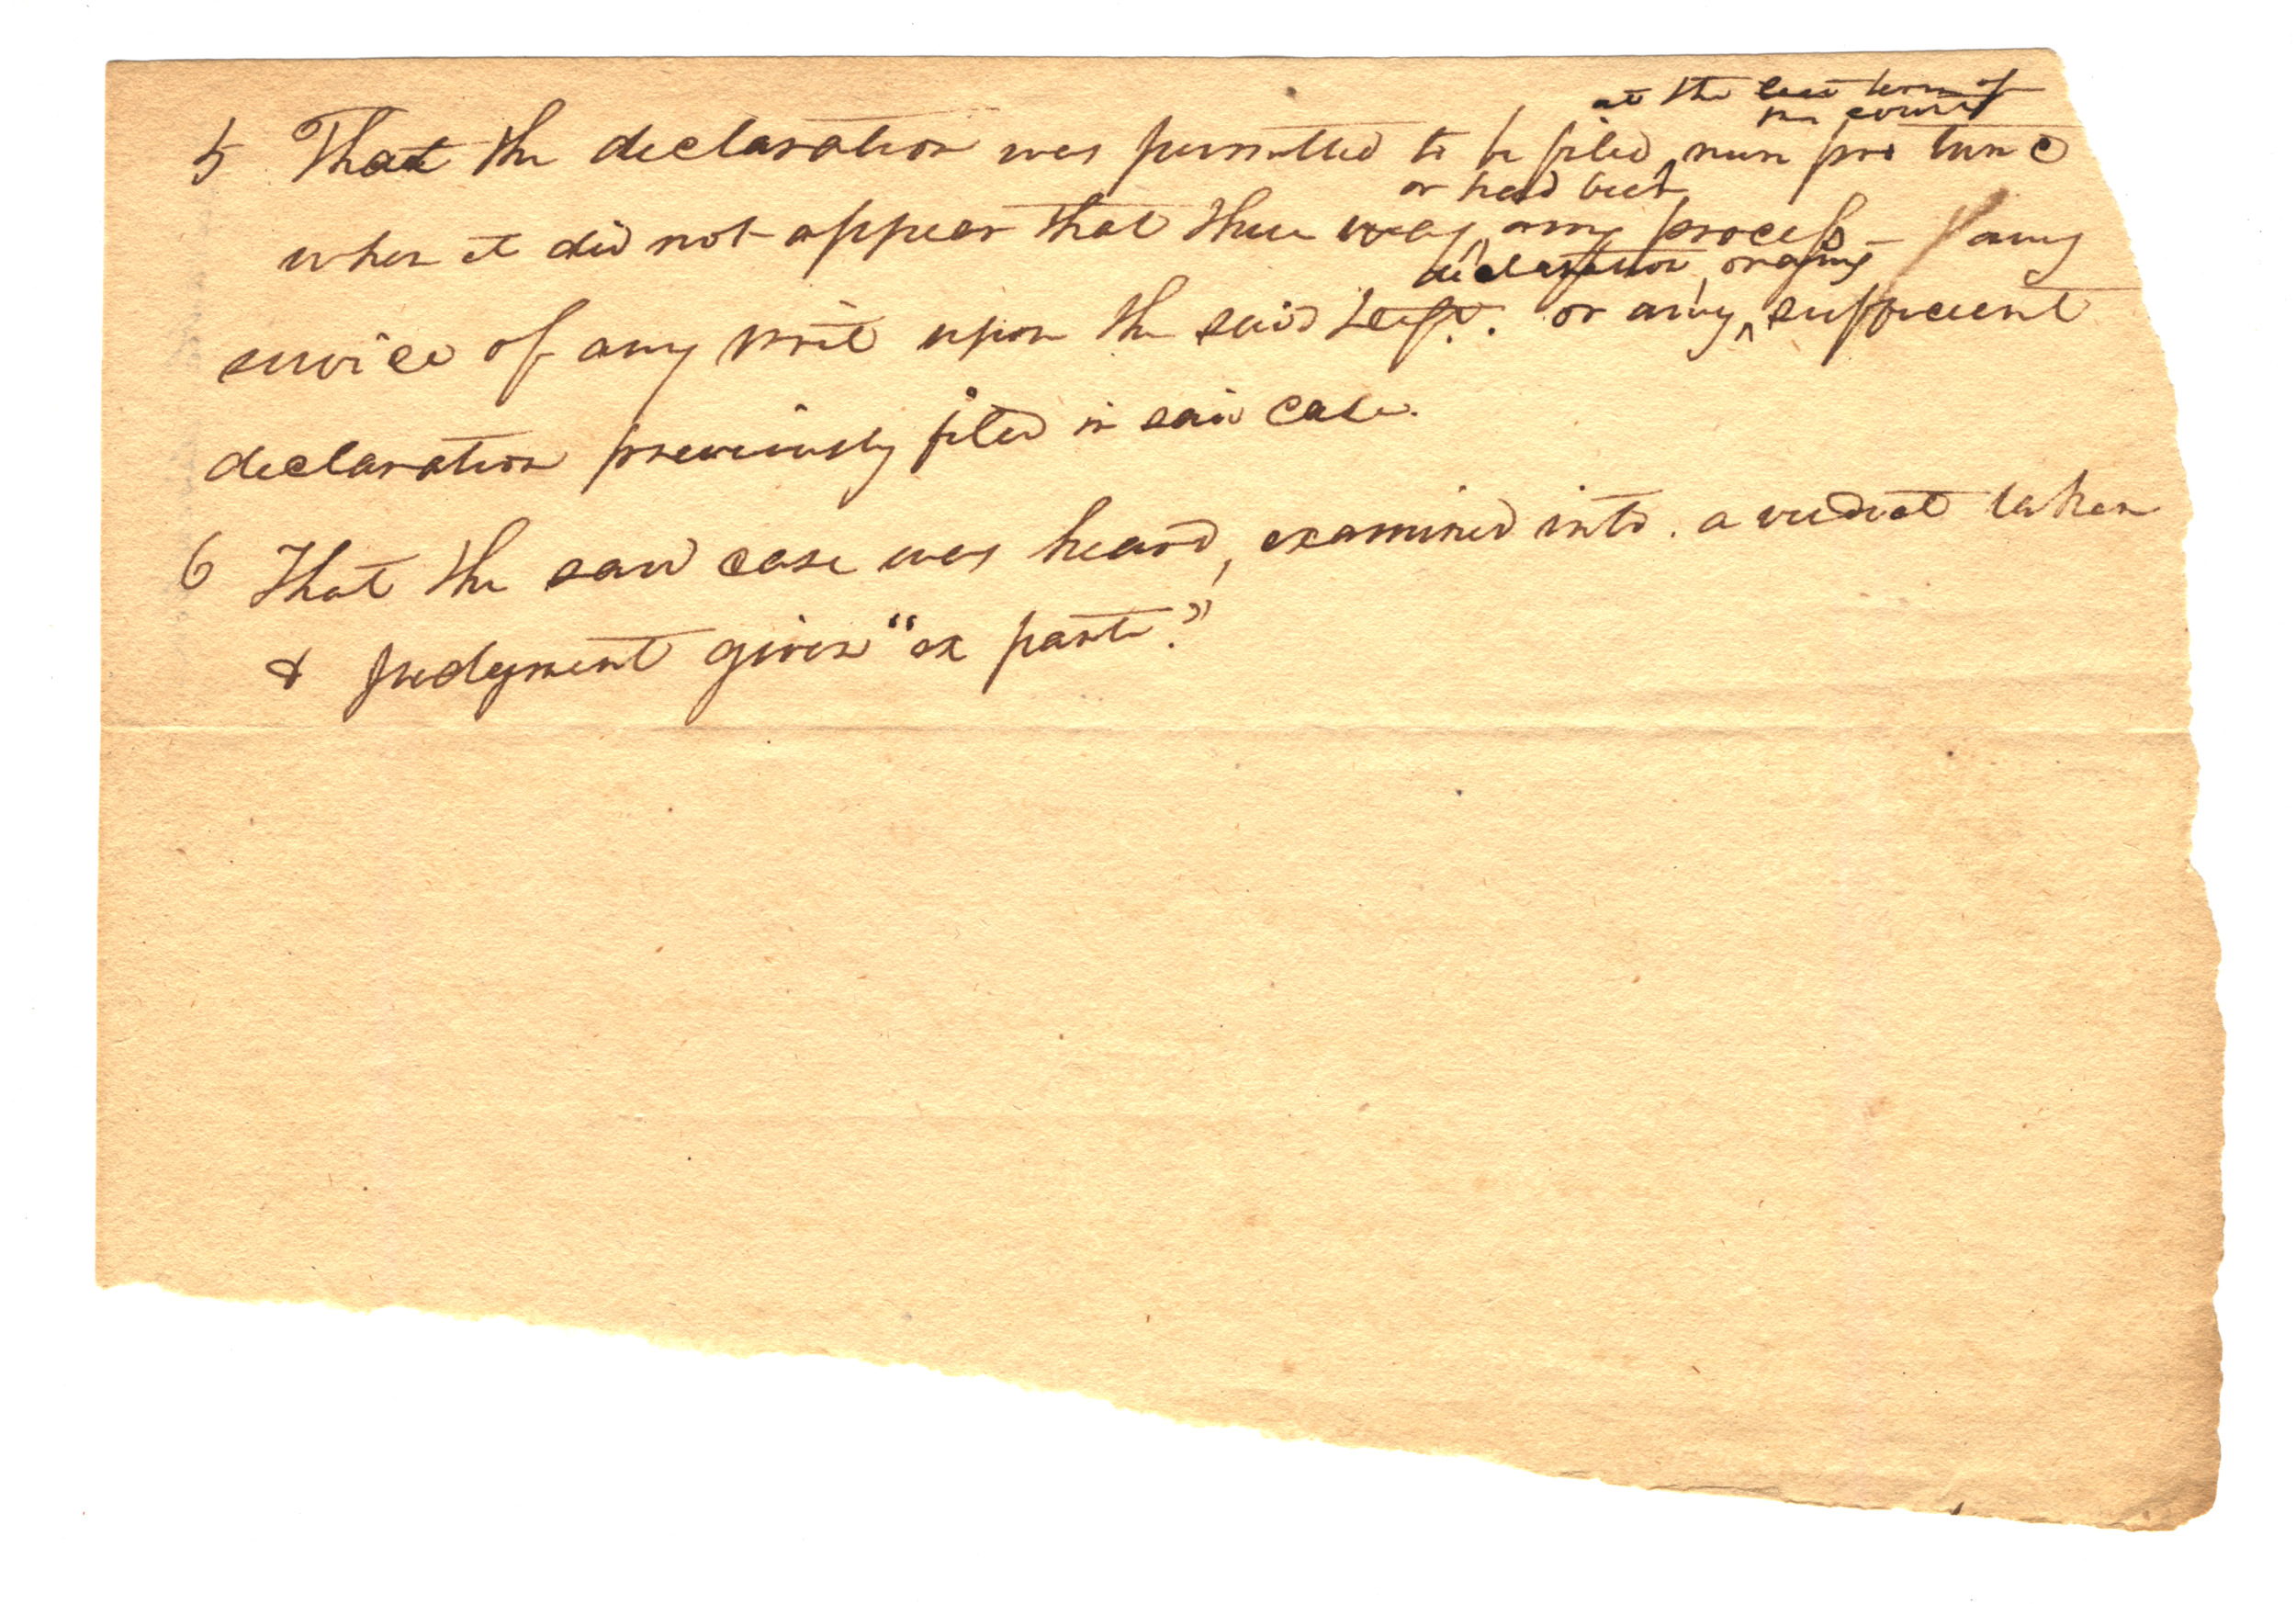 at the last term of
the court
5 That the declaration was permitted to be filed nunc pro tunc
or had been
when it did not appear that there was any process – any
declaration or any
service of any writ upon the said or any sufficient
declaration previously filed in said case.
6 That the said case was heard, examined into. a verdict taken
& judgment given "ex parte."